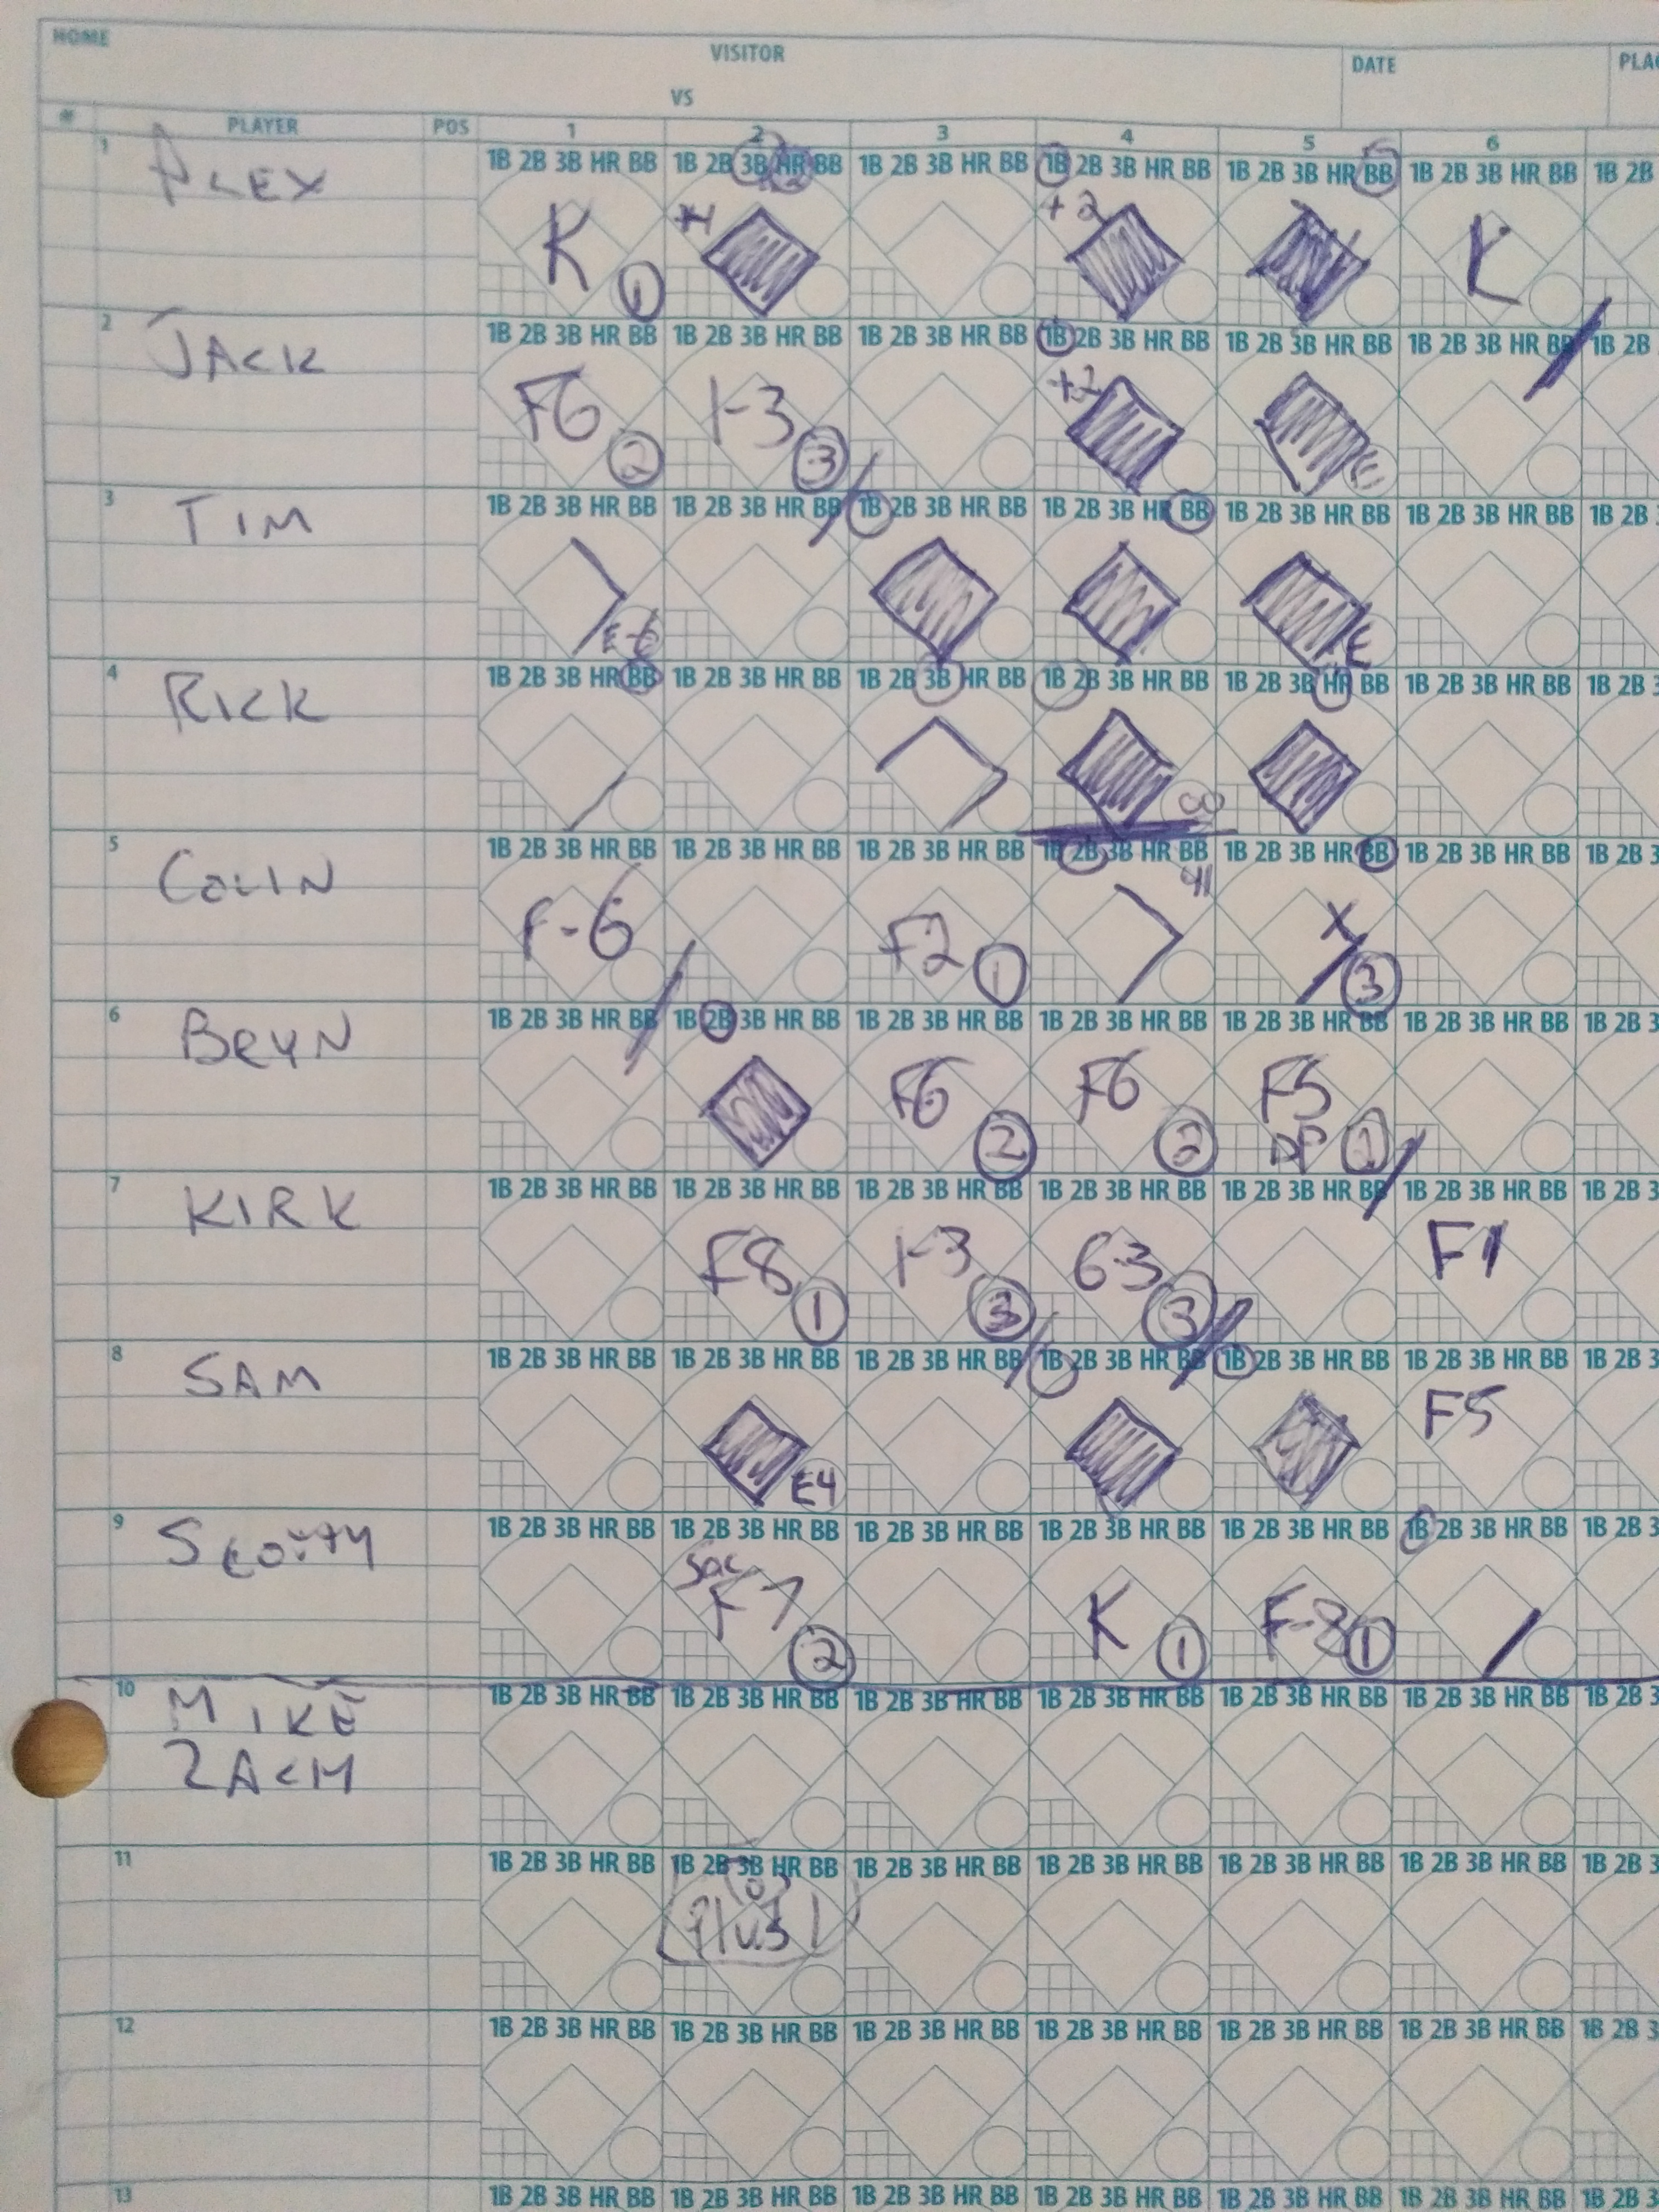 HOME
VISITOR
VS
DATE
# PLAYER POS 1 2 3 4 5 6
1 ALEX 1B 2B 3B HR BB 1B 2B 3B HR BB 1B 2B 3B HR BB 1B 2B 3B HR BB 1B 2B 3B HR BB 1B 2B 3B HR BB 1B 2B
K 1 +4 +2 K
2 JACK 1B 2B 3B HR BB 1B 2B 3B HR BB 1B 2B 3B HR BB 1B 2B 3B HR BB 1B 2B 3B HR BB 1B 2B 3B HR BB 1B 2B
F6 2 1-3 3 +2 E
3 TIM 1B 2B 3B HR BB 1B 2B 3B HR BB 1B 2B 3B HR BB 1B 2B 3B HR BB 1B 2B 3B HR BB 1B 2B 3B HR BB 1B 2B
E-6 E
4 RICK 1B 2B 3B HR BB 1B 2B 3B HR BB 1B 2B 3B HR BB 1B 2B 3B HR BB 1B 2B 3B HR BB 1B 2B 3B HR BB 1B 2B 3
5 COLIN 1B 2B 3B HR BB 1B 2B 3B HR BB 1B 2B 3B HR BB 1B 2B 3B HR BB 1B 2B 3B HR BB 1B 2B 3B HR BB 1B 2B 3
F-6 F2 1 X 3
6 BRYN 1B 2B 3B HR BB 1B 2B 3B HR BB 1B 2B 3B HR BB 1B 2B 3B HR BB 1B 2B 3B HR BB 1B 2B 3B HR BB 1B 2B 3
F6 2 F6 2 F5 DP 2
7 KIRK 1B 2B 3B HR BB 1B 2B 3B HR BB 1B 2B 3B HR BB 1B 2B 3B HR BB 1B 2B 3B HR BB 1B 2B 3B HR BB 1B 2B 3
F8 1 1-3 3 6-3 3 F1
8 SAM 1B 2B 3B HR BB 1B 2B 3B HR BB 1B 2B 3B HR BB 1B 2B 3B HR BB 1B 2B 3B HR BB 1B 2B 3B HR BB 1B 2B 3
E4 F5
9 SCOTTY 1B 2B 3B HR BB 1B 2B 3B HR BB 1B 2B 3B HR BB 1B 2B 3B HR BB 1B 2B 3B HR BB 1B 2B 3B HR BB 1B 2B 3
Sac F7 2 K 1 F-8 1
10 MIKE 1B 2B 3B HR BB 1B 2B 3B HR BB 1B 2B 3B HR BB 1B 2B 3B HR BB 1B 2B 3B HR BB 1B 2B 3B HR BB 1B 2B 3
ZACH
11 1B 2B 3B HR BB 1B 2B 3B HR BB 1B 2B 3B HR BB 1B 2B 3B HR BB 1B 2B 3B HR BB 1B 2B 3B HR BB 1B 2B 3
Plus 1
12 1B 2B 3B HR BB 1B 2B 3B HR BB 1B 2B 3B HR BB 1B 2B 3B HR BB 1B 2B 3B HR BB 1B 2B 3B HR BB 1B 2B 3
13 1B 2B 3B HR BB 1B 2B 3B HR BB 1B 2B 3B HR BB 1B 2B 3B HR BB 1B 2B 3B HR BB 1B 2B 3B HR BB 1B 2B 3